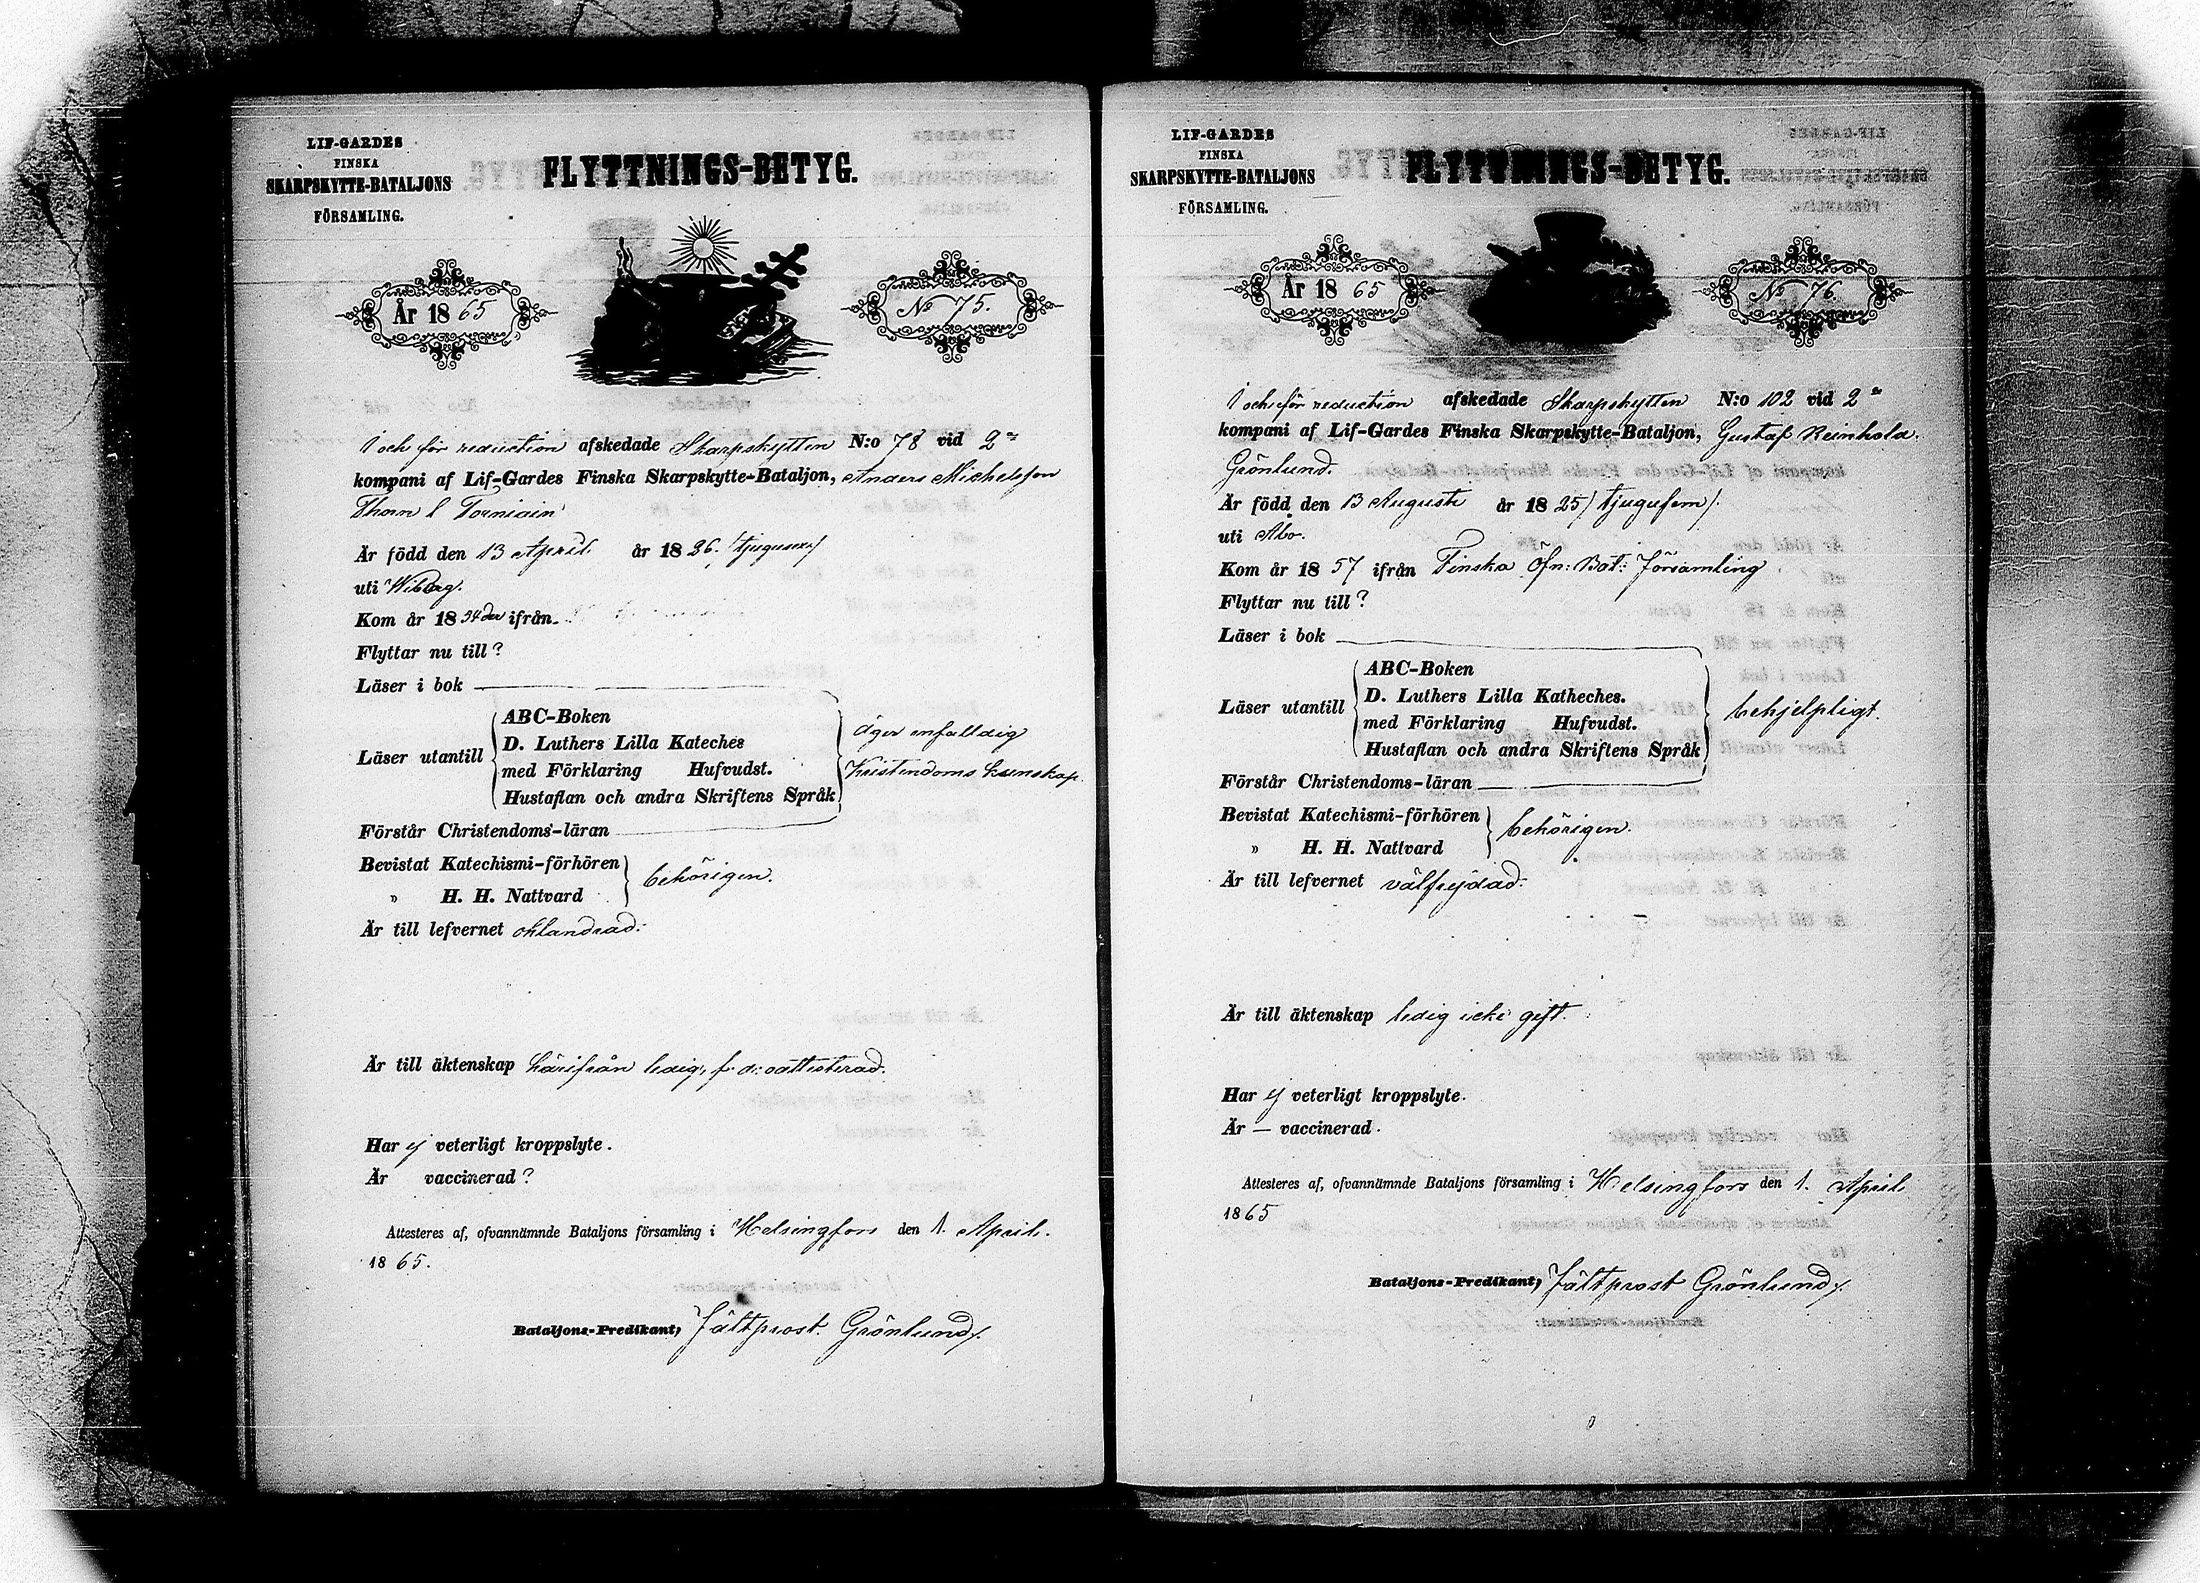 LIF-GARDES
FINSKA
SKARPSKYTTE-BATALJONS
FÖRSAMLING.
FLYTTNINGS-BETYG.
År 18 65
No 75.
I och för reduction afskedade Skarpskytten N:o 78 vid 2
kompani af Lif-Gardes Finska Skarpskytte-Bataljon, Anders Michelsson
Thorn l Torniain
Är född den 13 April år 18 26. /tjugusex/
uti Wiborg.
Kom år 18 54 ifrån
Flyttar nu till?
Läser i bok
Läser utantill
ABC-Boken
D. Luthers Lilla Kateches
med Förklaring Hufvudst.
Hustaflan och andra Skriftens Språk
äger enfalldig
Kristendoms kunskap.
Förstår Christendoms-läran
Bevistat Katechismi-förhören
" H. H. Nattvard
behörigen.
Är till lefvernet oklandrad:
Är till äktenskap härifrån ledig, f. d: oattesterad.
Har ej veterligt kroppslyte.
Är vaccinerad?
Attesteres af, ofvannämnde Bataljons församling i Helsingfors den 1. April.
1865.
Bataljons-Predikant, Fältprost. Grönlund/.
LIF-GARDES
FINSKA
SKARPSKYTTE-BATALJONS
FÖRSAMLING.
FLYTTNINGS-BETYG.
År 18 65
No 76.
I och för reduction afskedade Skarpskytten N:o 102 vid 2
kompani af Lif-Gardes Finska Skarpskytte-Bataljon, Gustaf Reinhold
Grönlund.
Är född den 13 Augusti år 18 25/ tjugufem/.
uti Åbo.
Kom år 18 57 ifrån Finska Öfn: Bat: Församling
Flyttar nu till?
Läser i bok
Läser utantill
ABC-Boken
D. Luthers Lilla Katheches.
med Förklaring Hufvudst.
Hustaflan och andra Skriftens Språk
behjelpligt.
Förstår Christendoms-läran
Bevistat Katechismi-förhören
" H. H. Nattvard
behörigen.
Är till lefvernet välfrejdad:
Är till äktenskap ledig icke gift.
Har ej veterligt kroppslyte.
Är — vaccinerad.
Attesteres af, ofvannämnde Bataljons församling i Helsingfors den 1. April.
1865
Bataljons-Predikant, Fältprost Grönlund/.